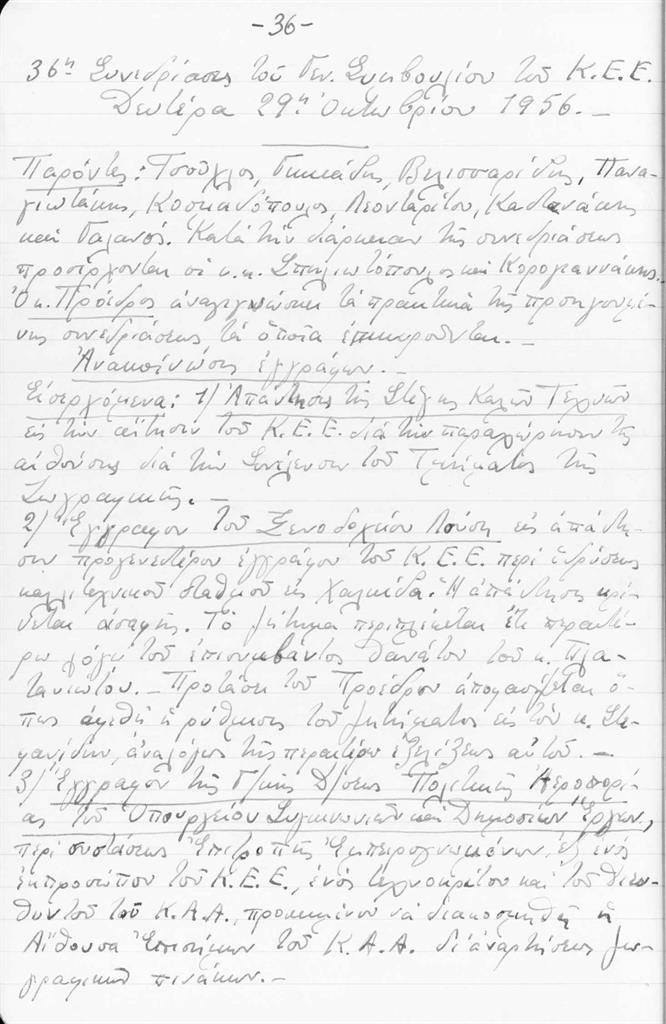 -36-
36η Συνεδρίασις τοῦ Γεν. Συμβουλίου τοῦ Κ.Ε.Ε.
Δευτέρα 29η Ὀκτωβρίου 1956.-
Παρόντες: Τσοῦχλος, Γηικάδης, Βελισσαρίδης, Πανα-
γιωτάκης, Κοσκαδόπουλος, Λεονταρίτου, Καστανάκης
καὶ Γαλανός. Κατὰ τὴν διάρκειαν τῆς συνεδριάσεως
προσέρχονται οἱ κ.κ. Σπηλιωτόπουλος καὶ Κορογιαννάκης.
Ὁ κ. Πρόεδρος ἀναγιγνώσκει τὰ πρακτικὰ τῆς προηγουμέ-
νης συνεδριάσεως τὰ ὁποῖα ἐπικυροῦνται.-
Ἀνακοινώσεις ἐγγράφων.-
Εἰσερχόμενα: 1) Ἀπάντησις τῆς Στέγης Καλῶν Τεχνῶν
εἰς τὴν αἴτησιν τοῦ Κ.Ε.Ε. διὰ τὴν παραχώρησιν τῆς
αἰθούσης διὰ τὴν Συνέλευσιν τοῦ Τμήματος τῆς
Ζωγραφικῆς.-
2) Ἔγγραφον τοῦ Ξενοδοχείου Λούση εἰς ἀπάντη-
σιν προγενεστέρου ἐγγράφου τοῦ Κ.Ε.Ε. περὶ ἱδρύσεως
καλλιτεχνικοῦ σταθμοῦ εἰς Χαλκίδα. Ἡ ἀπάντησις κρί-
νεται ἀσαφής. Τὸ ζήτημα περιπλέκεται ἔτι περαιτέ-
ρω λόγῳ τοῦ ἐπισυμβάντος θανάτου τοῦ κ. Πλα-
τανιώτου.- Προτάσει τοῦ Προέδρου ἀποφασίζεται ὅ-
πως ἀφεθῇ ἡ ρύθμισις τοῦ ζητήματος εἰς τὸν κ. Στε-
φανίδην, ἀναλόγως τῆς περαιτέρω ἐξελίξεως αὐτοῦ.-
3) Ἔγγραφον τῆς Γ/κῆς Δ/σεως Πολιτικῆς Ἀεροπορί-
ας τοῦ Ὑπουργείου Συγκοινωνιῶν καὶ Δημοσίων Ἔργων,
περὶ συστάσεως Ἐπιτροπῆς Ἐμπειρογνωμόνων, ἐξ ἑνὸς
ἐκπροσώπου τοῦ Κ.Ε.Ε., ἑνὸς τεχνοκρίτου καὶ τοῦ διευ-
θυντοῦ τοῦ Κ.Α.Α., προκειμένου νὰ διακοσμηθῇ ἡ
Αἴθουσα Ἐπισήμων τοῦ Κ.Α.Α. δι' ἀναρτήσεως ζω-
γραφικῶν πινάκων.-